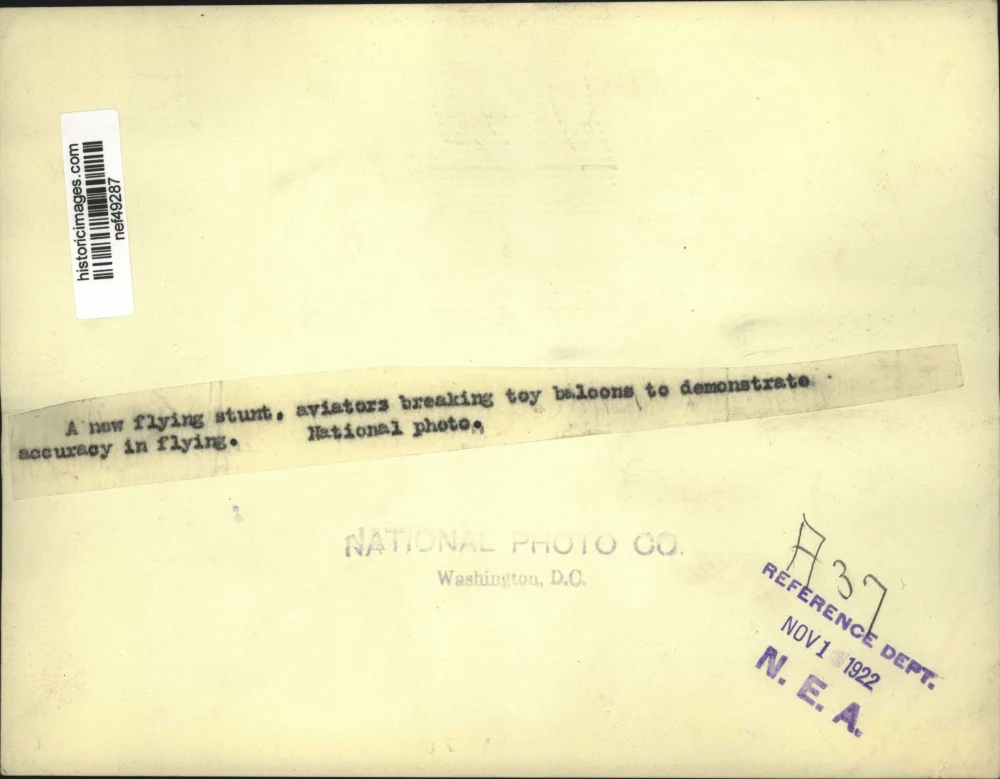 historicimages.com
nef49287
A new flying stunt. aviators breaking toy baloons to demonstrate
accuracy in flying. National photo.
NATIONAL PHOTO CO.
Washington, D.C.
A37
REFERENCE DEPT.
NOV 1 1922
N. E. A.